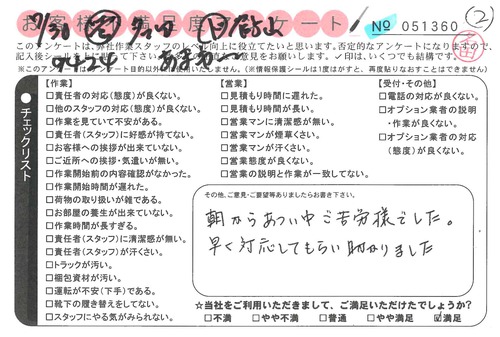 お客様満足度アンケート
№ 051360
②
このアンケートは、弊社作業スタッフのレベル向上に役立てたいと思います。否定的なアンケートになりますので、
※このアンケートは、アンケート目的以外には使用いたしません。(※情報保護シールは1度はがすと、再度貼りなおすことはできません)
チェックリスト
【作業】
□責任者の対応(態度)が良くない。
□他のスタッフの対応(態度)が良くない。
□作業を見ていて不安がある。
□責任者(スタッフ)に好感が持てない。
□お客様への挨拶が出来ていない。
□ご近所への挨拶・気遣いが無い。
□作業開始前の内容確認がなかった。
□作業開始時間が遅れた。
□荷物の取り扱いが雑である。
□お部屋の養生が出来ていない。
□作業時間が長すぎる。
□責任者(スタッフ)に清潔感が無い。
□責任者(スタッフ)が汗くさい。
□トラックが汚い。
□梱包資材が汚い。
□運転が不安(下手)である。
□靴下の履き替えをしてない。
□スタッフにやる気がみられない。
【営業】
□見積もり時間に遅れた。
□見積もり時間が長い。
□営業マンに清潔感が無い。
□営業マンが煙草くさい。
□営業マンが汗くさい。
□営業態度が良くない。
□営業の説明と作業が一致してない。
【受付・その他】
□電話の対応が良くない。
□オプション業者の説明
・作業が良くない。
□オプション業者の対応
(態度)が良くない。
その他、ご意見・ご要望等ありましたらお書き下さい。
朝からあつい中ご苦労様でした。
早く対応してもらい助かりました
☆当社をご利用いただきまして、ご満足いただけたでしょうか?
□不満 □やや不満 □普通 □やや満足 ☑満足